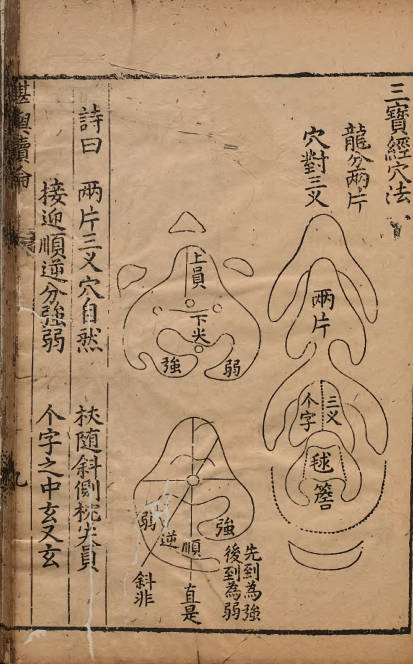 三寶經穴法
龍分兩片
穴對三义
兩片
三义
个字
毬簷
上員
下尖
強
弱
弱
強
逆
順
先到為強
後到為弱
直是
斜非
詩曰 兩片三义穴自然 扶随斜側枕尖員
接迎順逆分強弱 个字之中玄又玄
堪輿續論
九